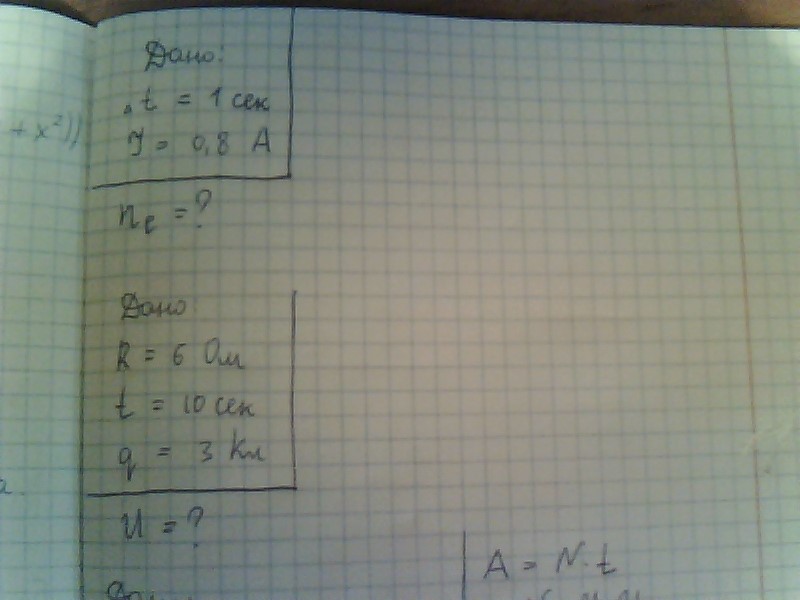 + x²))
Дано:
t = 1 сек
I = 0,8 А
nₑ = ?
Дано
R = 6 Ом
t = 10 сек
q = 3 Кл
U = ?
A = N·t